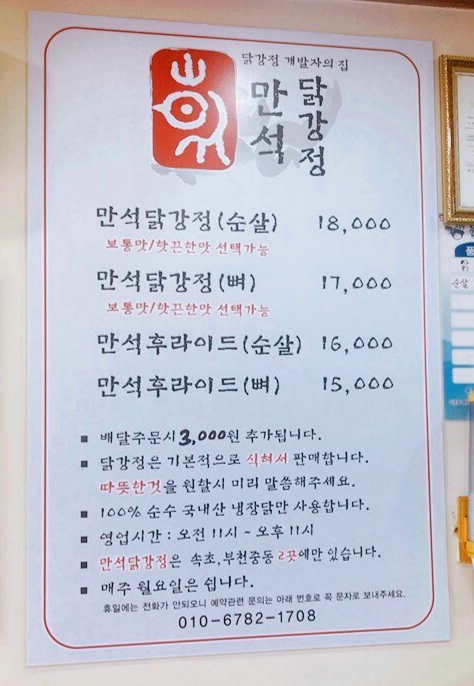 닭강정 개발자의 집
만석
닭강정
만석닭강정(순살) 18,000
보통맛/핫끈한맛 선택가능
만석닭강정(뼈) 17,000
보통맛/핫끈한맛 선택가능
만석후라이드(순살) 16,000
만석후라이드(뼈) 15,000
■ 배달주문시 3,000원 추가됩니다.
■ 닭강정은 기본적으로 식혀서 판매합니다.
따뜻한것을 원할시 미리 말씀해주세요.
■ 100% 순수 국내산 냉장닭만 사용합니다.
■ 영업시간 : 오전 11시 ~ 오후 11시
■ 만석닭강정은 속초,부천중동 2곳에만 있습니다.
■ 매주 월요일은 쉽니다.
휴일에는 전화가 안되오니 예약관련 문의는 아래 번호로 꼭 문자로 보내주세요.
010-6782-1708
닭
순살